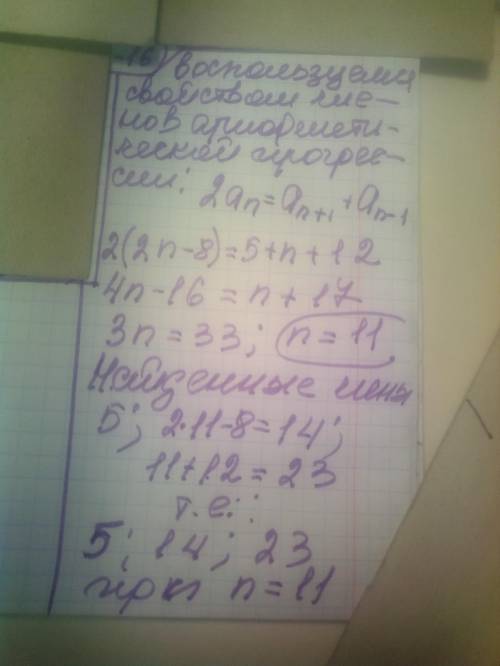 16) воспользуемся
свойством чле-
нов арифмети-
ческой прогрес-
сии: 2aₙ=aₙ₊₁+aₙ₋₁
2(2n-8)=5+n+12
4n-16=n+17
3n=33; n=11
Найденные члены
5; 2·11-8=14;
11+12=23
т.е.:
5; 14; 23
при n=11